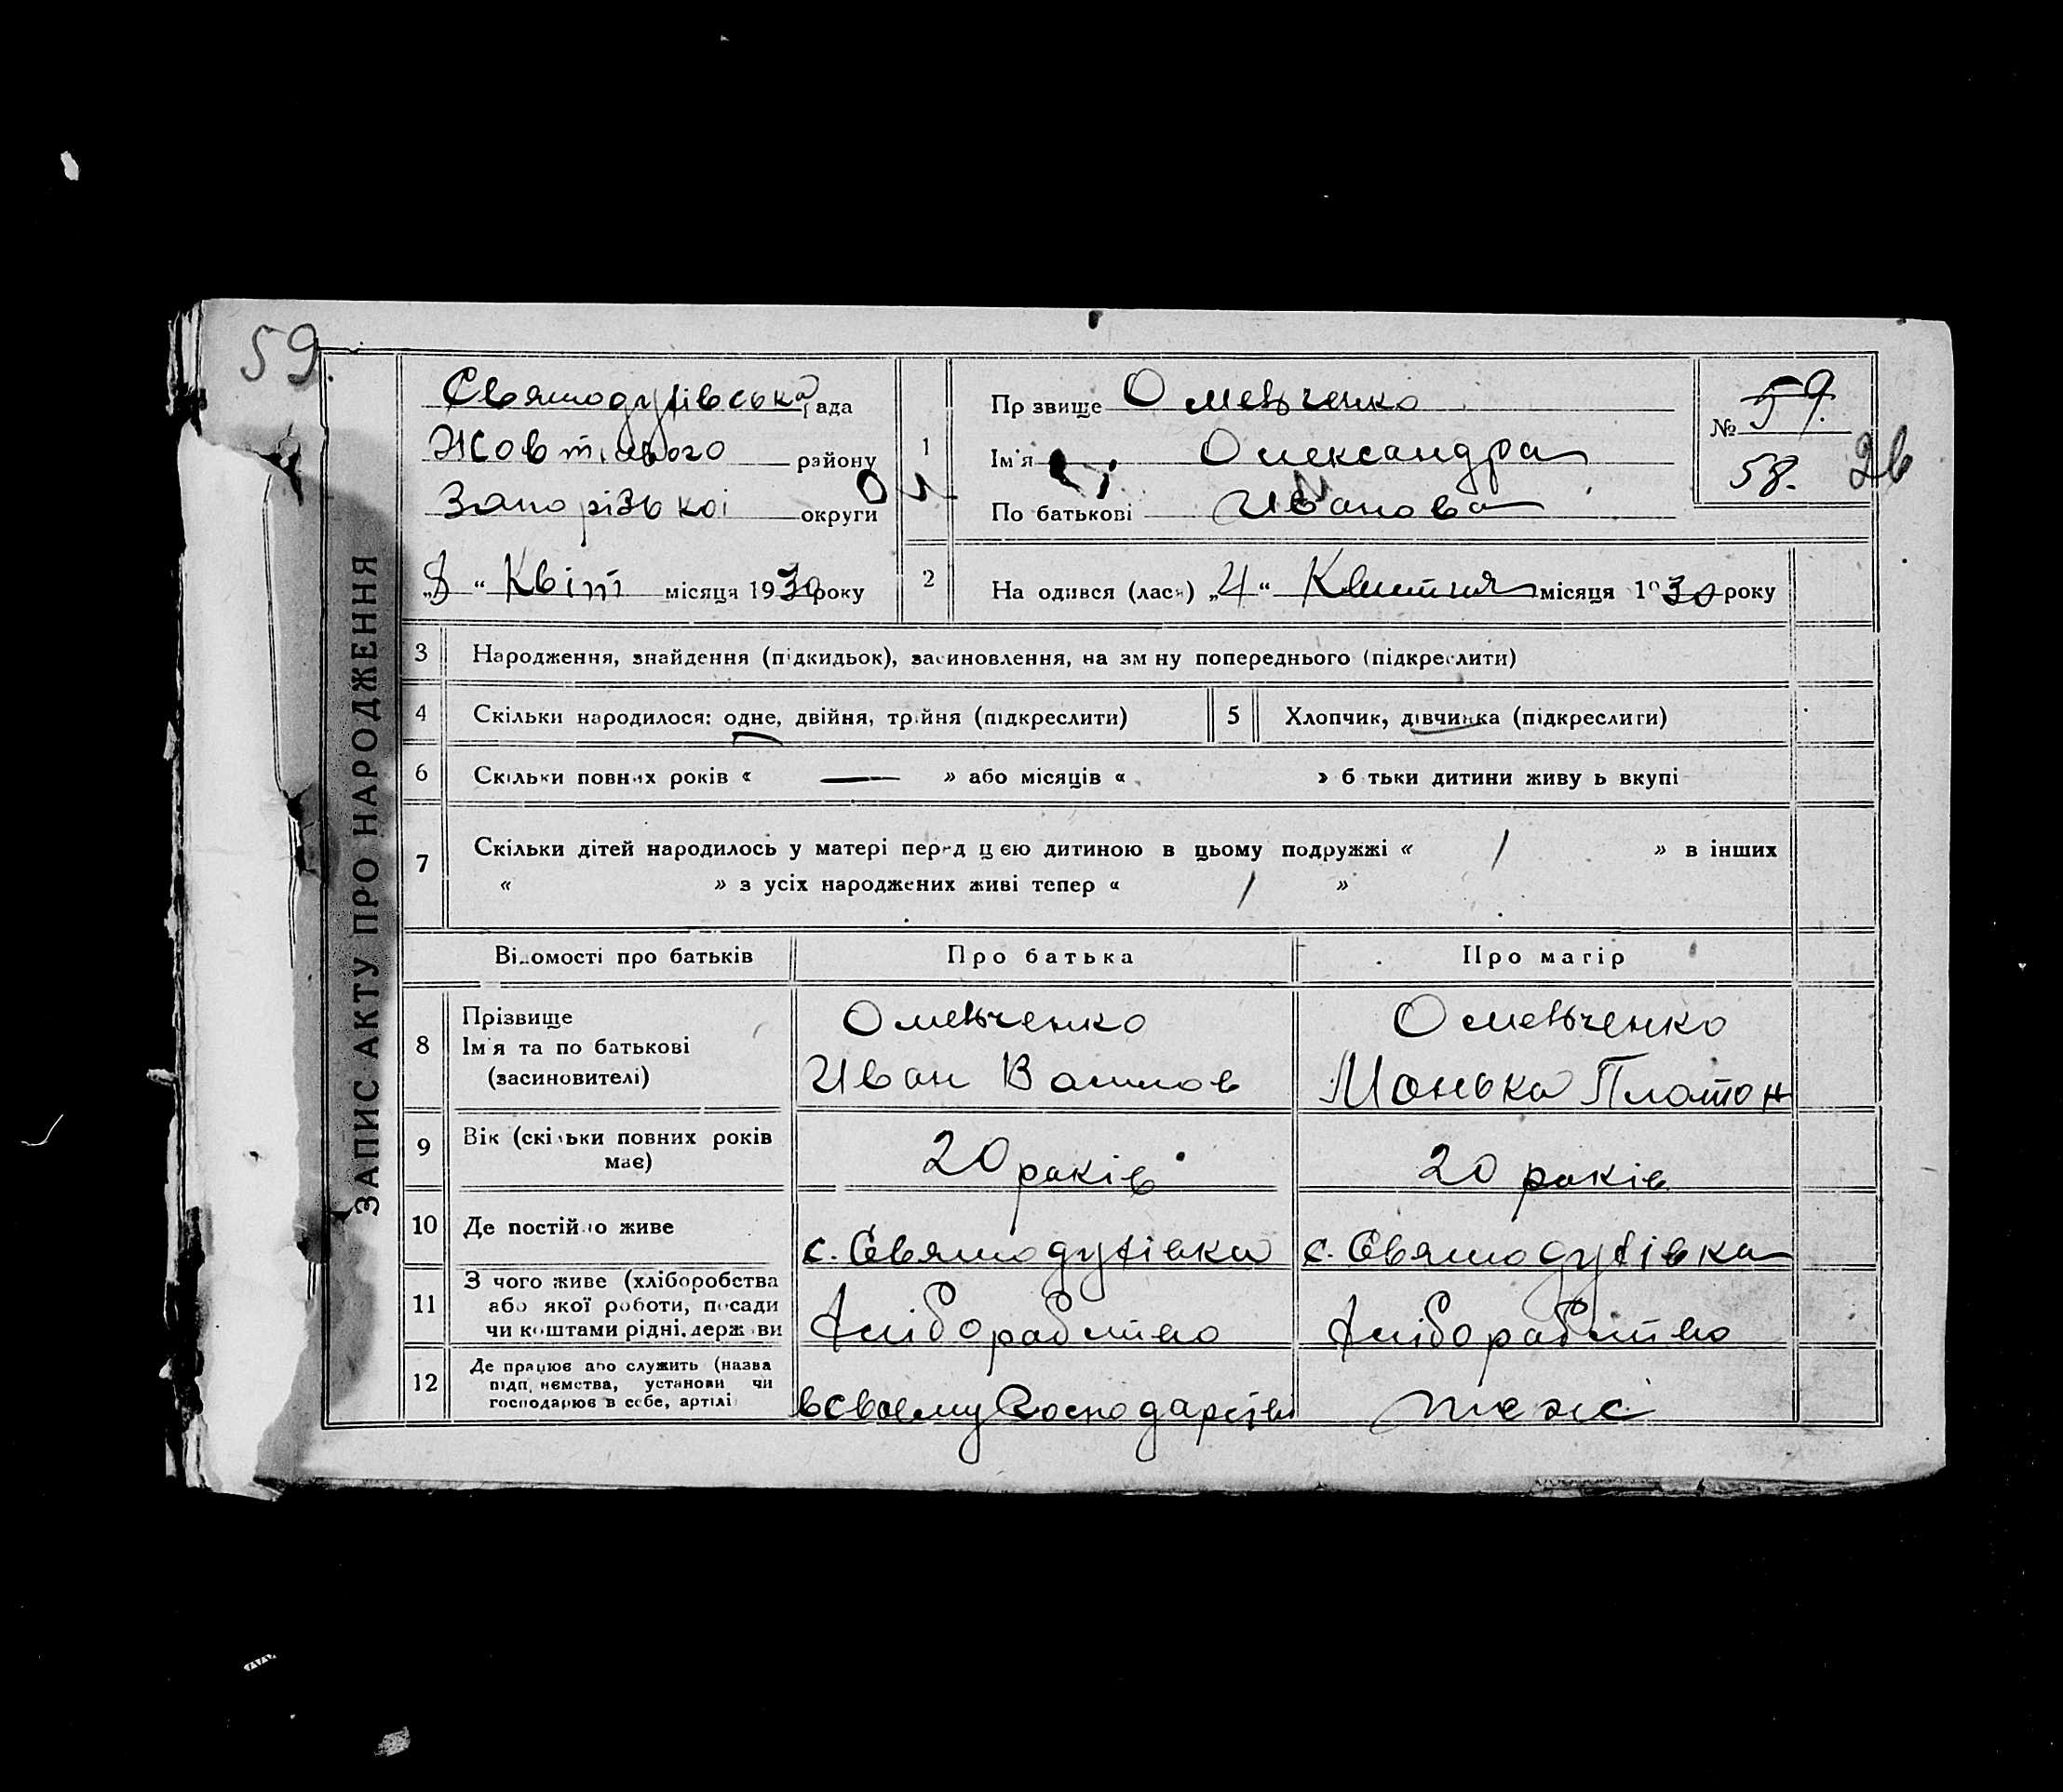 59.
ЗАПИС АКТУ ПРО НАРОДЖЕННЯ
Святодухівська рада
Жовтнвого району
Запорізької округи
„8“ Квіт місяця 1930 року
1
Пр звище Омельченко
Ім'я Олександра
По батькові Ивановa
№ 59.
58.
26
2
На одився (лася) „4“ Квитня місяця 1930 року
3 Народження, знайдення (підкидьок), засиновлення, на зм ну попереднього (підкреслити)
4 Скільки народилося: одне, двійня, трійня (підкреслити)
5 Хлопчик, дівчинка (підкреслити)
6 Скільки повних років « — » або місяців « » б тьки дитини живу ь вкупі
7 Скільки дітей народилось у матері перед цією дитиною в цьому подружжі « 1 » в інших
« » з усіх народжених живі тепер « 1 »
Відомості про батьків Про батька Про матір
8 Прізвище
Ім'я та по батькові
(засиновителі)
Омельченко
Иван Васылов
Омельченко
Монька Платон
9 Вік (скільки повних років
має)
20 років
20 років
10 Де постійно живе
с. Святодухівка
с. Святодухівка
11 З чого живе (хліборобства
або якої роботи, посади
чи коштами рідні, держ ви
Хліборобство
Хліборобство
12 Де працює або служить (назва
підп нємства, установи чи
господарює в себе, артілі
в своєму господарстві
теж